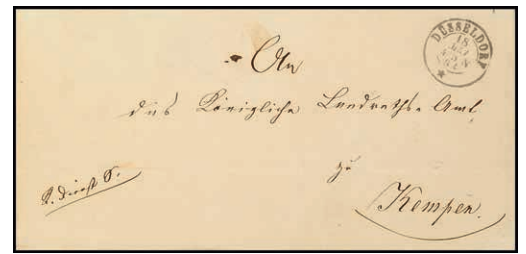 DÜSSELDORF
18
An
das Königliche Landraths-Amt
zu
Kempen.